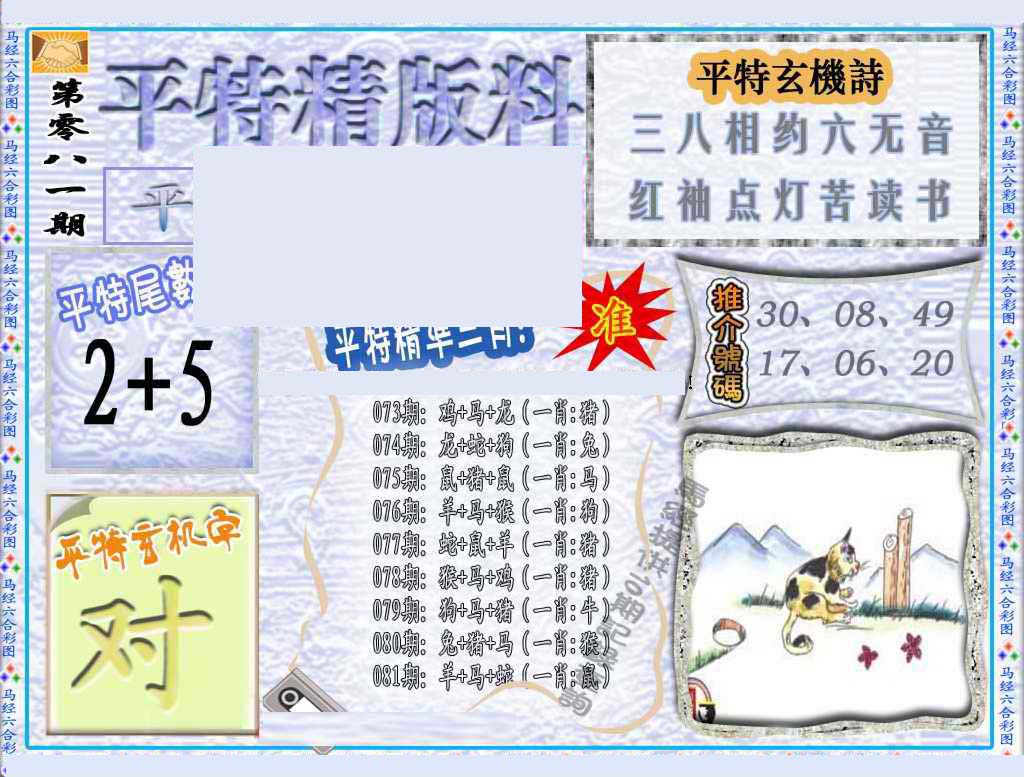 第零八一期
平特精版料
平
平特玄機詩
三八相约六无音
红袖点灯苦读书
平特尾數
2+5
平特精准一肖:
准
推介號碼
30、08、49
17、06、20
073期: 鸡+马+龙 (一肖:猪)
074期: 龙+蛇+狗 (一肖:兔)
075期: 鼠+猪+鼠 (一肖:马)
076期: 羊+马+猴 (一肖:狗)
077期: 蛇+鼠+羊 (一肖:猪)
078期: 猴+马+鸡 (一肖:猪)
079期: 狗+马+猪 (一肖:牛)
080期: 兔+猪+马 (一肖:猴)
081期: 羊+马+蛇 (一肖:鼠)
平特玄机字
对
马经六合彩图 马经六合彩图 马经六合彩图 马经六合彩图 马经六合彩图 马经六合彩图 马经六合彩
马经六合彩图 马经六合彩图 马经六合彩图 马经六合彩图 马经六合彩图 马经六合彩图 马经六合彩图